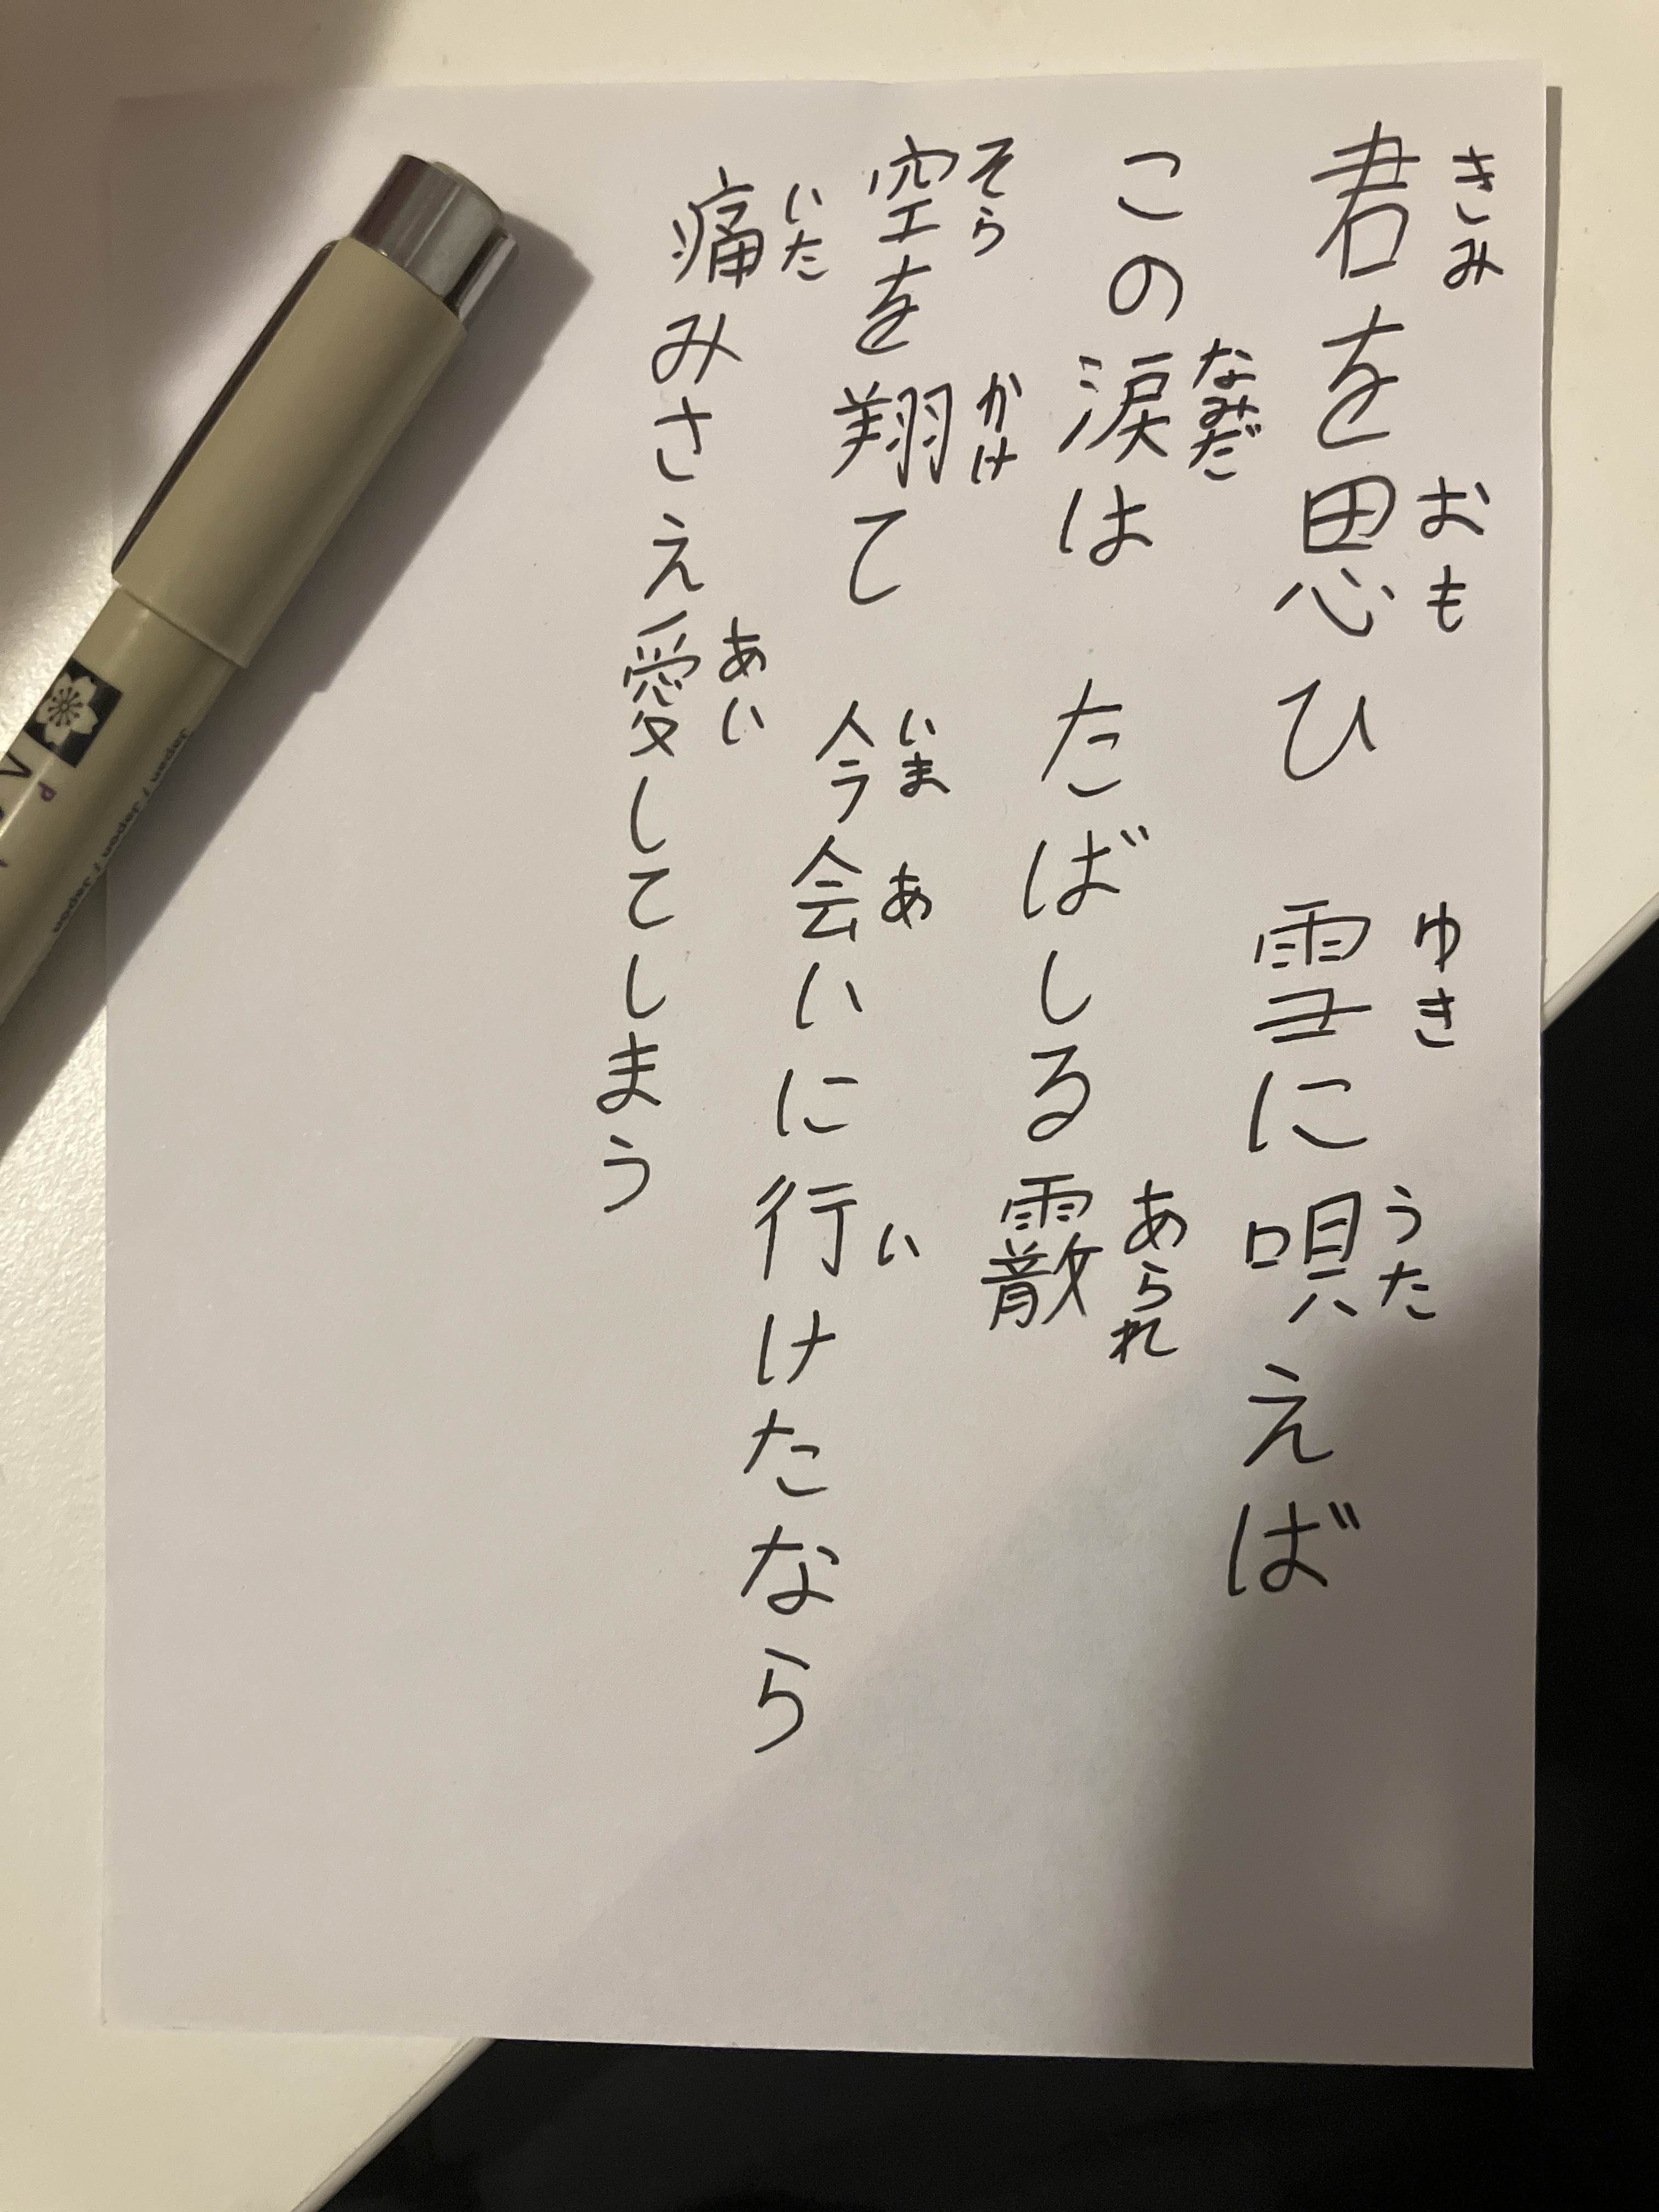 きみ おも ゆき うた
君を思ひ 雪に唄えば
なみだ あられ
この涙は たばしる霰
そら かけ いま あ い
空を翔て 今会いに行けたなら
いた あい
痛みさえ愛してしまう
Japan / Japan / Japan